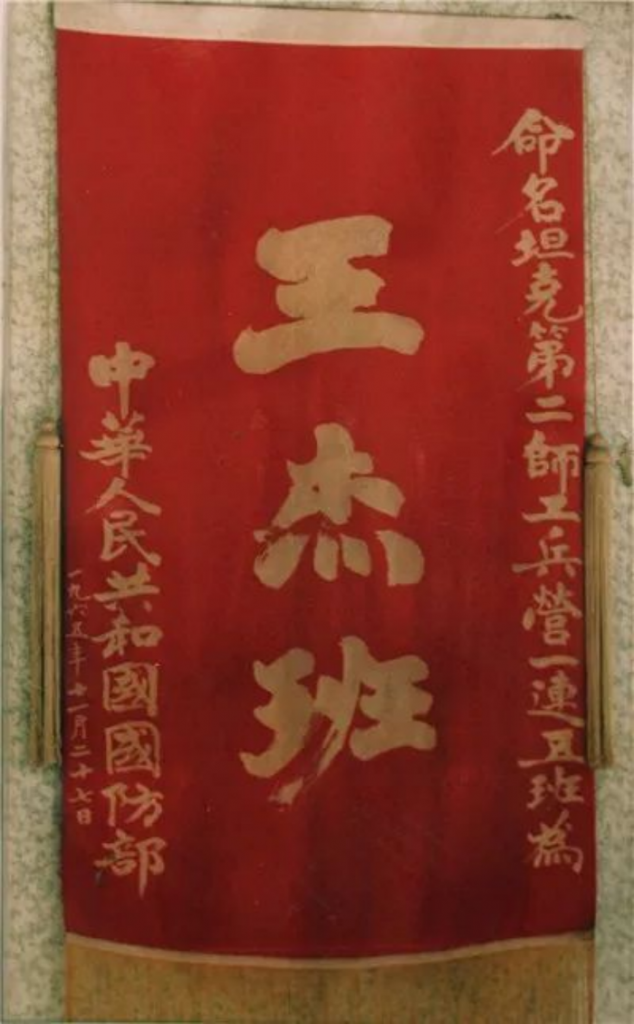 命名坦克第二師工兵營一連五班為
王杰班
中華人民共和國國防部
一九六五年十一月二十七日